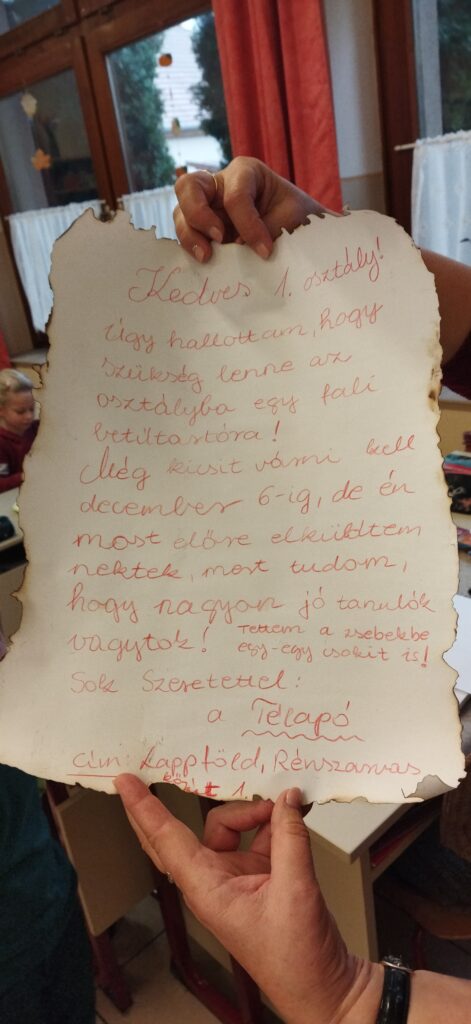 Kedves 1. osztály!
Úgy hallottam, hogy
szükség lenne az
osztályba egy fali
betűtartóra!
Még kicsit várni kell
december 6-ig, de én
most előre elküldtem
nektek, mert tudom,
hogy nagyon jó tanulók
vagytok! Tettem a zsebekbe
egy-egy csokit is!
Sok Szeretettel:
a Télapó
Cím: Lappföld, Rénszarvas
körút 1.